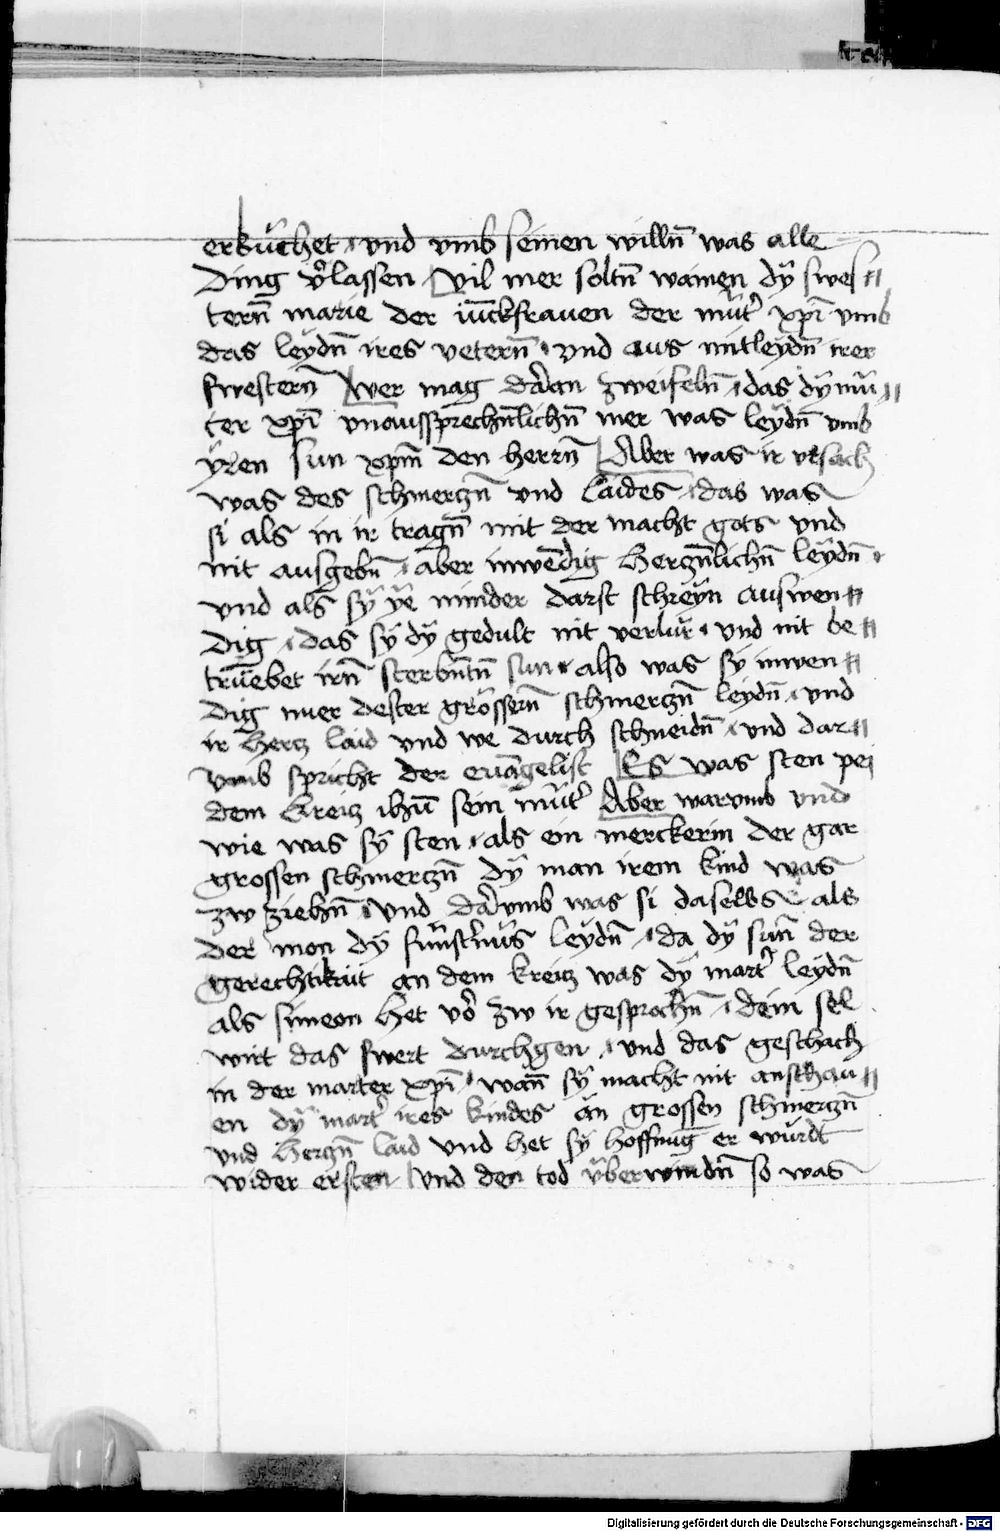 erkuchet, und vmb seinen willn̄ was alle
ding v̓lassen Vil mer soltn̄ wainen dÿ swes
tern̄ marie der iūckfrauen der mut̓ xpi̅ vmb
das leÿdn̄ ires vetern̄, vnd aus mitleydn̄ irer
swestern̄ Wer mag daran zweifeln̄, das dÿ mu
ter xpi̅ vnaussprechn̄lichn̄ mer was leÿdn̄ vmb
ÿren sun xpm̄ den herrn̄ Aber was ir vrsach
was des schmerczn̄ vnd laides, das was
si als in ir tragn̄ mit der macht gots vnd
nit ausgebn̄, aber inwēdig herczn̄lichn̄ leÿdn̄,
vnd als sÿ ÿe minder darft schreÿn auswen
dig, das sÿ dÿ gedult nit verlur, vnd nit be
trūebet irn̄ sterbn̄tn̄ sun, also was sÿ inwen
dig nuer dester grössern̄ schmerczn̄ leÿdn̄, vnd
ir hercz laid vnd we durch schneidn̄, vnd dar
vmb spricht der evāgelist Es was sten pei
dem kreicz ihu̅ sein mut̓ Aber warvmb vnd
wie was sÿ sten, als ein merckerin der gar
grossen schmerczn̄ dÿ man irem kind was
zw ziehn̄, vnd darvmb was si daselbs als
der mon dÿ leÿdn̄, da dÿ sun̄ der
gerechtikait an dem kreicz was dÿ mart̓ leÿdn̄
als simeon het vor zw ir gesprochn̄, dein sel
wirt das swert durchgen, vnd das geschach
in der marter xpi̅, wan̄ sÿ macht nit anschau
en dÿ mart̓ ires kindes an grossen schmerczn̄
vnd herczn̄ laid vnd het sÿ hoffnūg er wurdt
wider ersten, vnd den tod vberwindn̄ so was
Digitalisierung gefördert durch die Deutsche Forschungsgemeinschaft - DFG